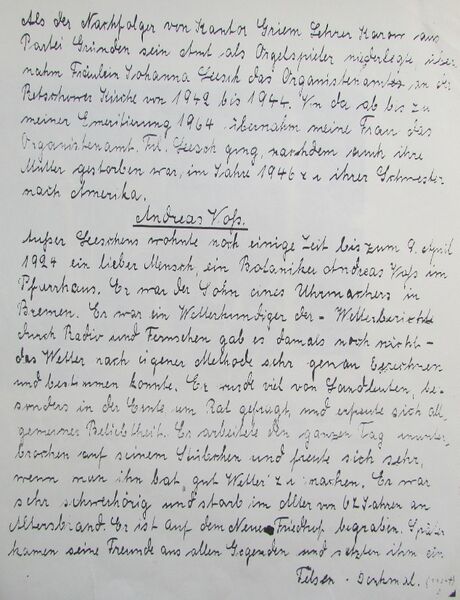 Als der Nachfolger von Kantor Griem Lehrer Karow aus
Partei Gründen sein Amt als Orgelspieler niederlegte über
nahm Fräulein Johanna Leesch das Organistenamt an der
Retschower Kirche von 1942 bis 1944. Von da ab bis zu
meiner Emeritierung 1964 übernahm meine Frau das
Organistenamt. Frl. Leesch ging, nachdem auch ihre
Mutter gestorben war, im Jahre 1946 zu ihrer Schwester
nach Amerika.
Andreas Voß.
Außer Leeschens wohnte noch einige Zeit bis zum 9. April
1924 ein lieber Mensch, ein Botaniker Andreas Voß im
Pfarrhaus. Er war der Sohn eines Uhrmachers in
Bremen. Er war ein Wetterkundiger der - Wetterbericht
durch Radio und Fernsehen gab es damals noch nicht -
das Wetter nach eigener Methode sehr genau berechnen
und bestimmen konnte. Er wurde viel von Landleuten, be-
sonders in der Ernte um Rat gefragt und erfreute sich all
gemeiner Beliebtheit. Er arbeitete den ganzen Tag ununter
brochen auf seinem Stübchen und freute sich sehr,
wenn man ihn bat, gut Wetter zu machen. Er war
sehr schwerhörig und starb im Alter von 67 Jahren an
Altersbrand Er ist auf dem Neuen Friedhof begraben. Später
kamen seine Freunde aus allen Gegenden und setzten ihm ein
Felsen - Denkmal.